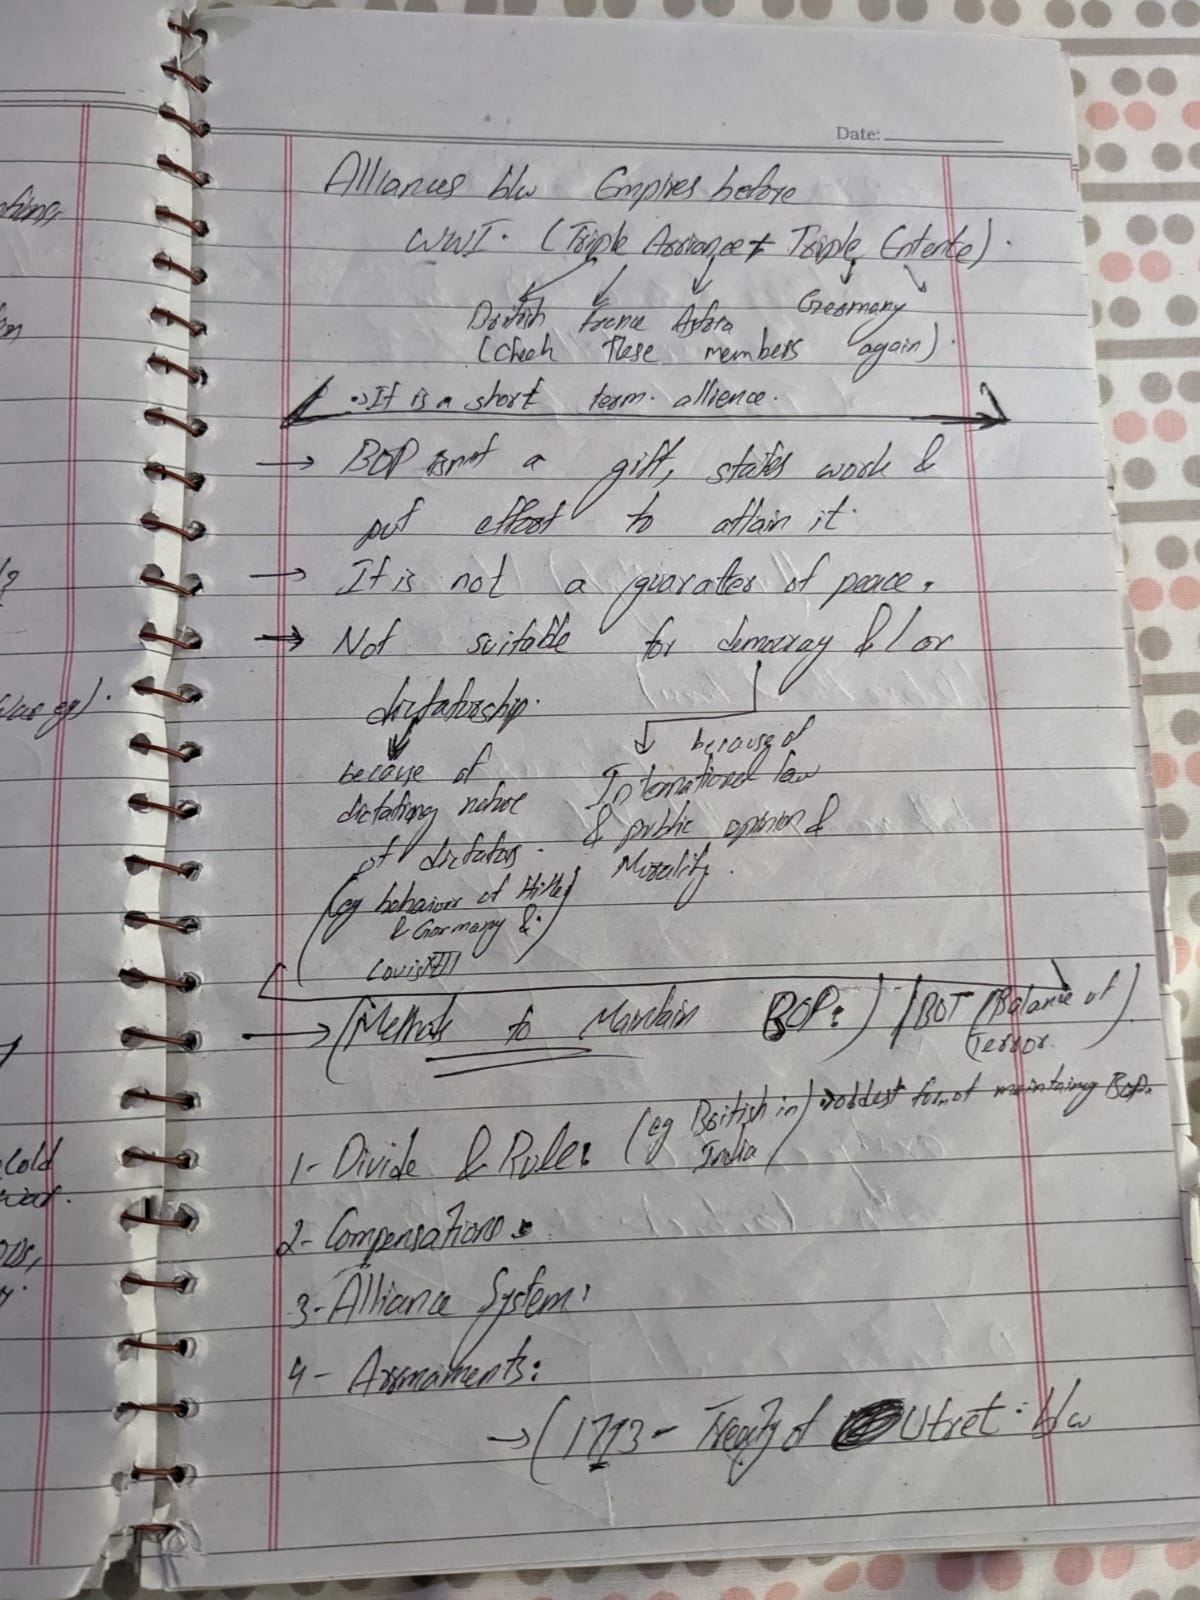 Date:
Alliances b/w Empires before
WWI. (Triple Arriance & Triple Entente).
British France Astria Germany
(Check these members again).
It is a short term. allience.
→ BOP isnot a gift, states work &
put effort to attain it.
→ It is not a guaratter of peace.
→ Not suitable for democray & / or
dictatorship.
because of
International law
& public opinion &
Morality.
because of
dictationg nature
of dictators.
(eg behaviour of Hitler
& Germany &
→ (Methods to Maintain BOP:) / BOT (Balance of
Terror.)
1- Divide & Rule: (eg British in India) → oddest form of maintaining BOP.
2- Compensations:
3- Alliance System:
4- Armaments:
→ (1713 - Treaty of Utret: b/w
ations,
Cold
war.